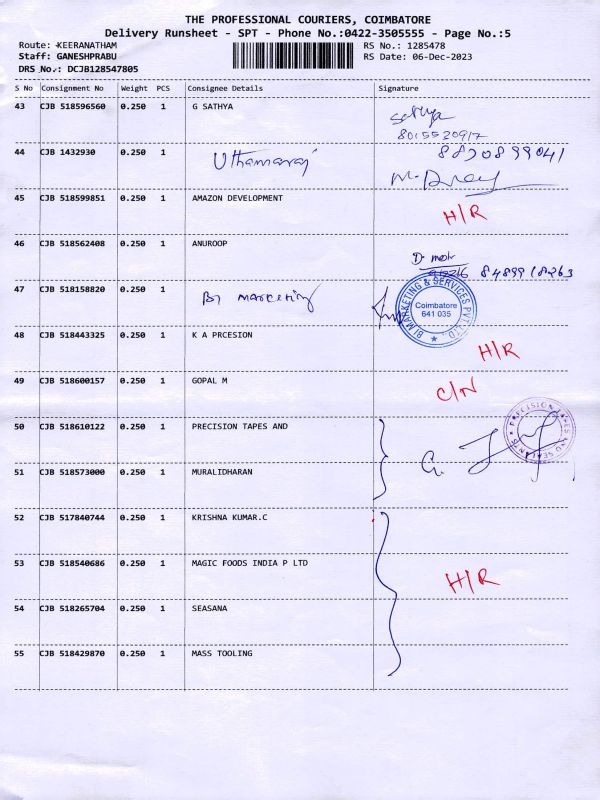 THE PROFESSIONAL COURIERS, COIMBATORE
Delivery Runsheet - SPT - Phone No.:0422-3505555 - Page No.:5
Route: KEERANATHAM RS No.: 1285478
Staff: GANESHPRABU RS Date: 06-Dec-2023
DRS No.: DCJB128547805
S No Consignment No Weight PCS Consignee Details Signature
43 CJB 518596560 0.250 1 G SATHYA Sathya
44 CJB 1432930 0.250 1 Uthamaraj 8820899041
45 CJB 518599851 0.250 1 AMAZON DEVELOPMENT H/R
46 CJB 518562408 0.250 1 ANUROOP
8489918263
47 CJB 518158820 0.250 1 BI MARKETING
BI MARKETING & SERVICES PVT LTD.
Coimbatore
641 035
48 CJB 518443325 0.250 1 K A PRCESION H/R
49 CJB 518600157 0.250 1 GOPAL M C/N
50 CJB 518610122 0.250 1 PRECISION TAPES AND
PRECISION TAPES AND SEALANTS
51 CJB 518573000 0.250 1 MURALIDHARAN
52 CJB 517840744 0.250 1 KRISHNA KUMAR.C
53 CJB 518540686 0.250 1 MAGIC FOODS INDIA P LTD H/R
54 CJB 518265704 0.250 1 SEASANA
55 CJB 518429870 0.250 1 MASS TOOLING